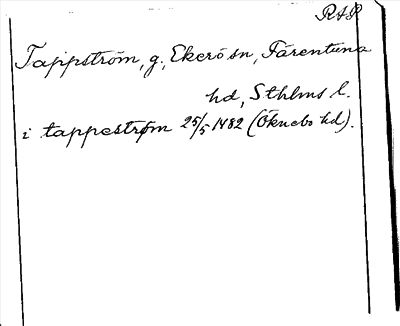 RAP
Tappström, g., Ekerö sn, Färentuna
hd, Sthlms l.
i tappestrøm 25/5 1482 (Öknebo hd).